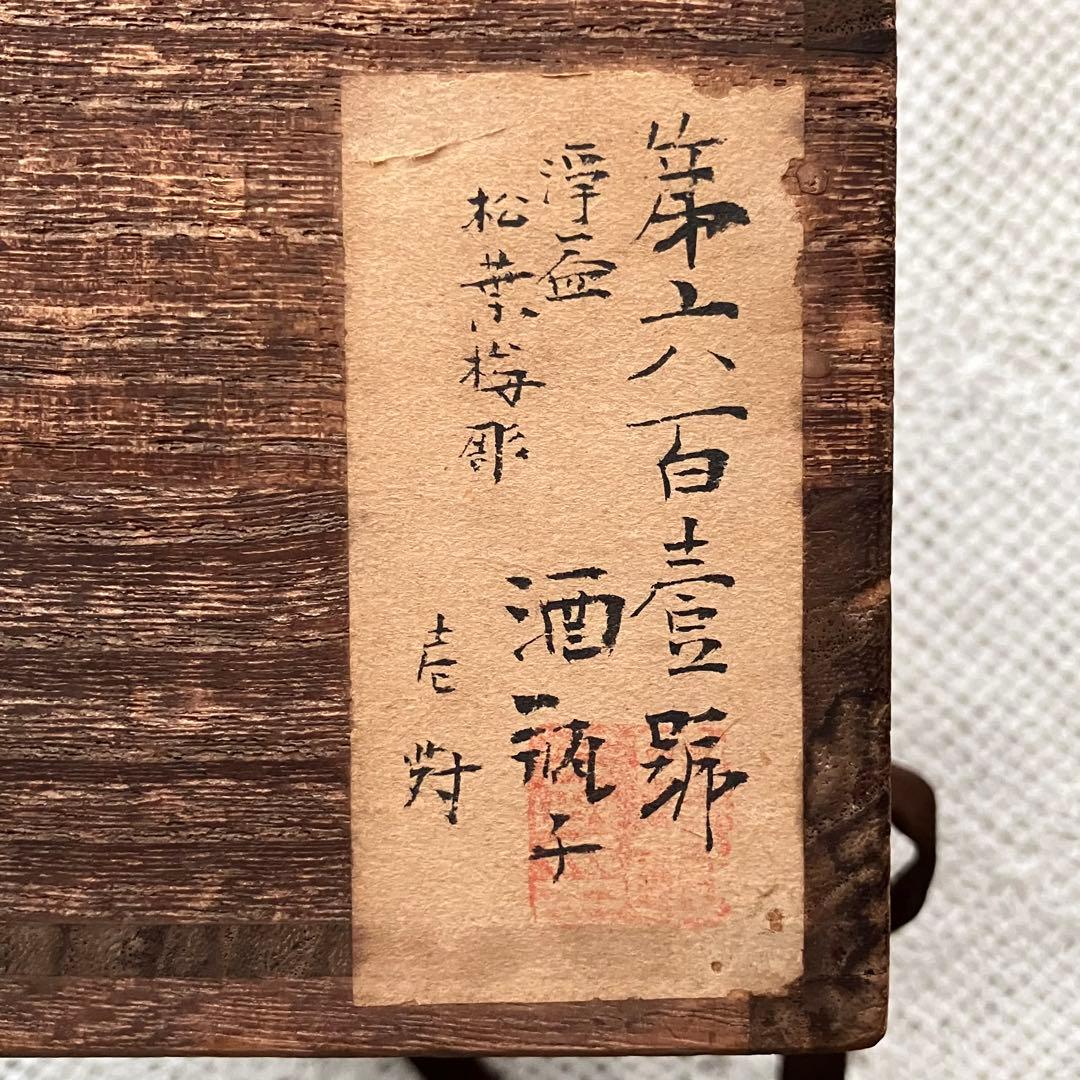 第六百壹號
淨益
松葉梅彫
酒瓶子
壱對